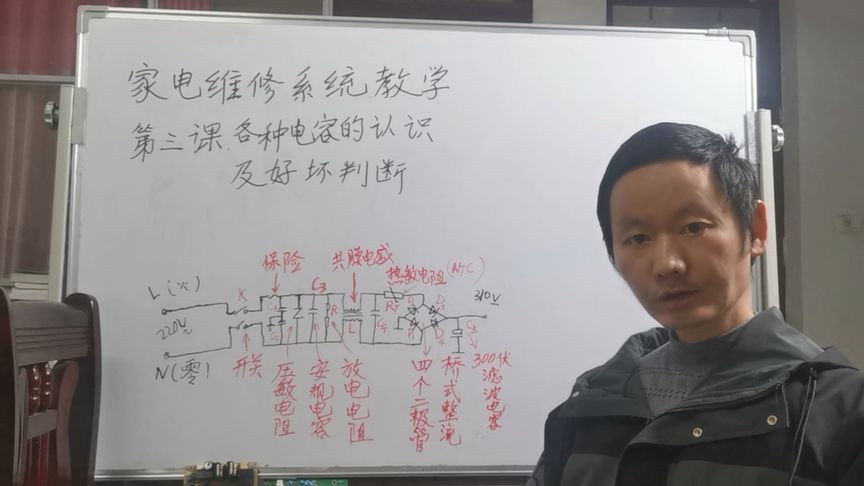 家电维修系统教学
第三课.各种电容的认识
及好坏判断
保险
共膜电感
热敏电阻(NTC)
L(火)
K
C3
R
L
C4
RT
310V
220V~
N(零)
C5
开关
压敏电阻
安规电容
放电电阻
四个二极管
桥式整流
300伏滤波电容